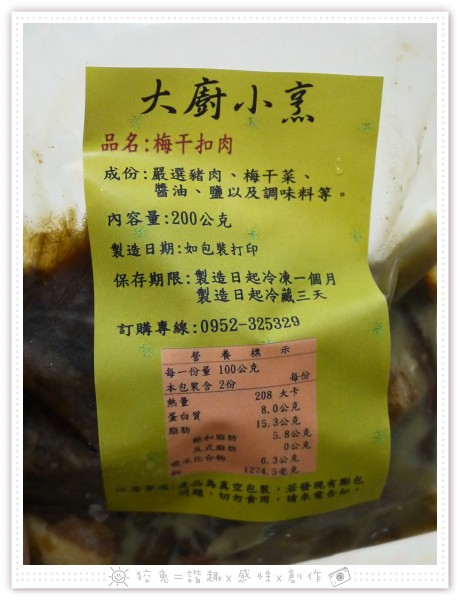 大廚小烹
品名:梅干扣肉
成份:嚴選豬肉、梅干菜、
醬油、鹽以及調味料等。
內容量:200公克
製造日期:如包裝打印
保存期限:製造日起冷凍一個月
製造日起冷藏三天
訂購專線:0952-325329
營養標示
每一份量 100公克
本包裝含 2份 每份
熱量 208 大卡
蛋白質 8.0公克
脂肪 15.3公克
飽和脂肪 5.8公克
反式脂肪 0公克
碳水化合物 6.3公克
鈉 1274.5毫克
注意事項:產品為真空包裝,若發現有膨包
問題,切勿食用,請來電告知。
狡兔=諧趣x感性x創作